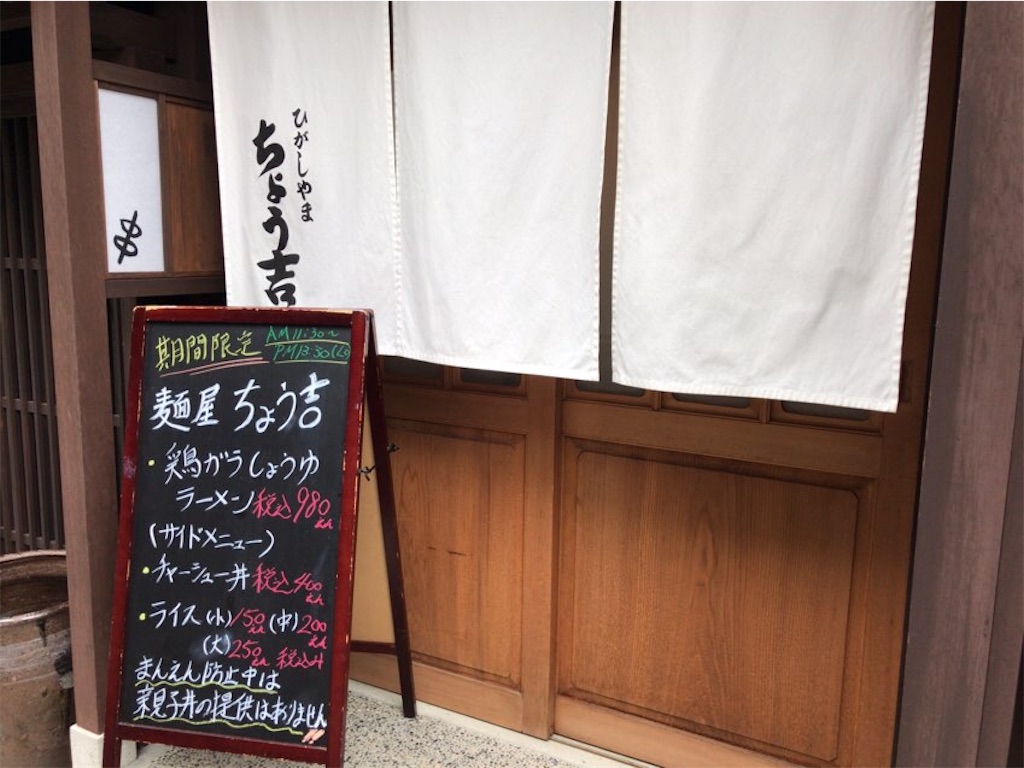 ひがしやま
ちょう吉
期間限定 AM11:30〜
PM13:30(LO)
麺屋 ちょう吉
・鶏ガラしょうゆ
ラーメン税込980えん
(サイドメニュー)
・チャーシュー丼税込400えん
・ライス(小)150えん(中)200えん
(大)250えん 税込み
まんえん防止中は
親子丼の提供はありません